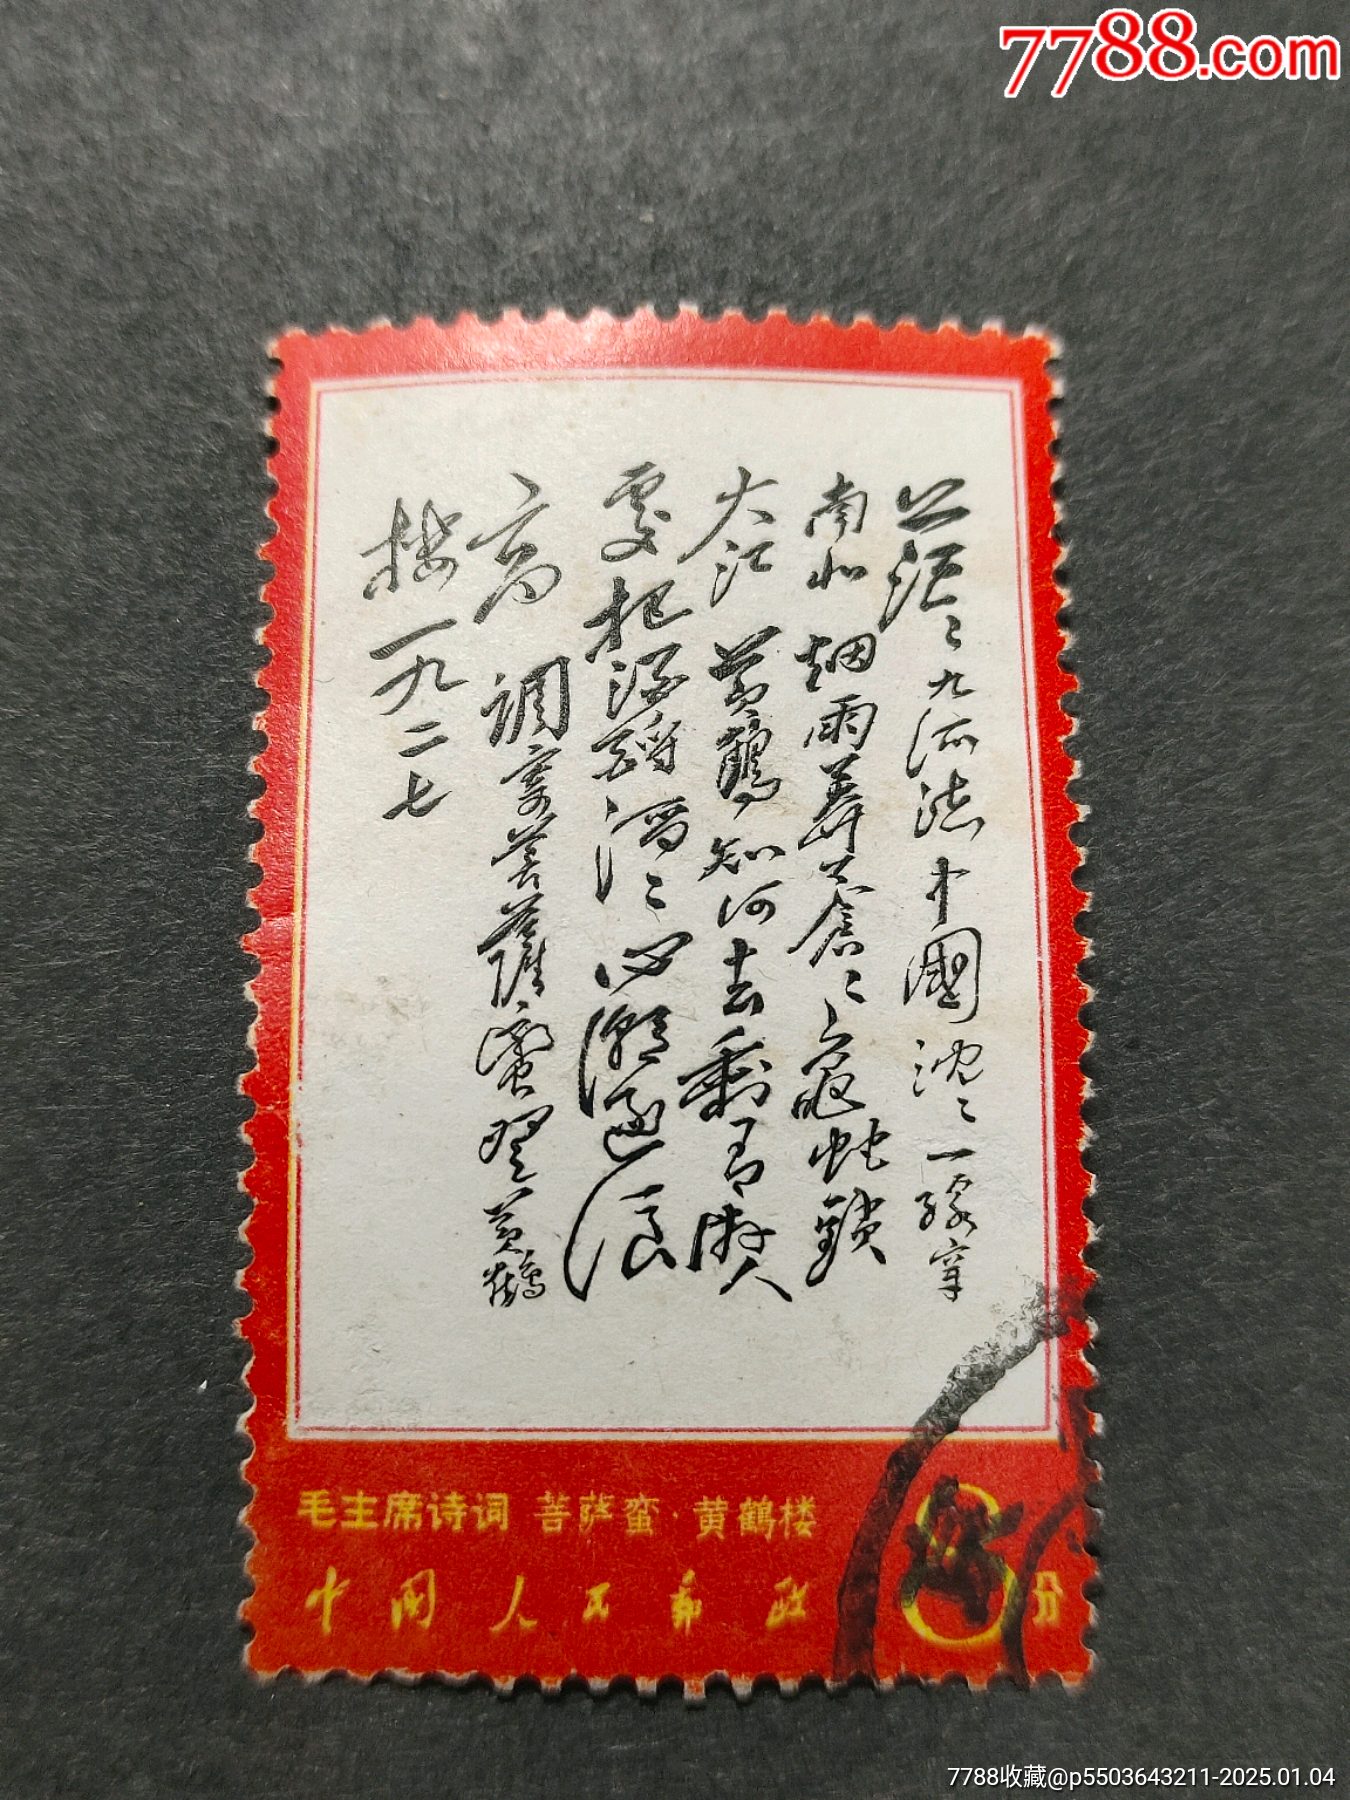 7788.com
茫〻九派流中國沈〻一線穿
南北烟雨莽蒼〻龜蛇鎖
大江黄鶴知何去剩有遊人
處把酒酹滔〻心潮逐浪
高 調寄菩薩蠻登黄鶴
楼一九二七
毛主席诗词 菩萨蛮·黄鹤楼
中国人民邮政 8分
7788收藏@p5503643211-2025.01.04